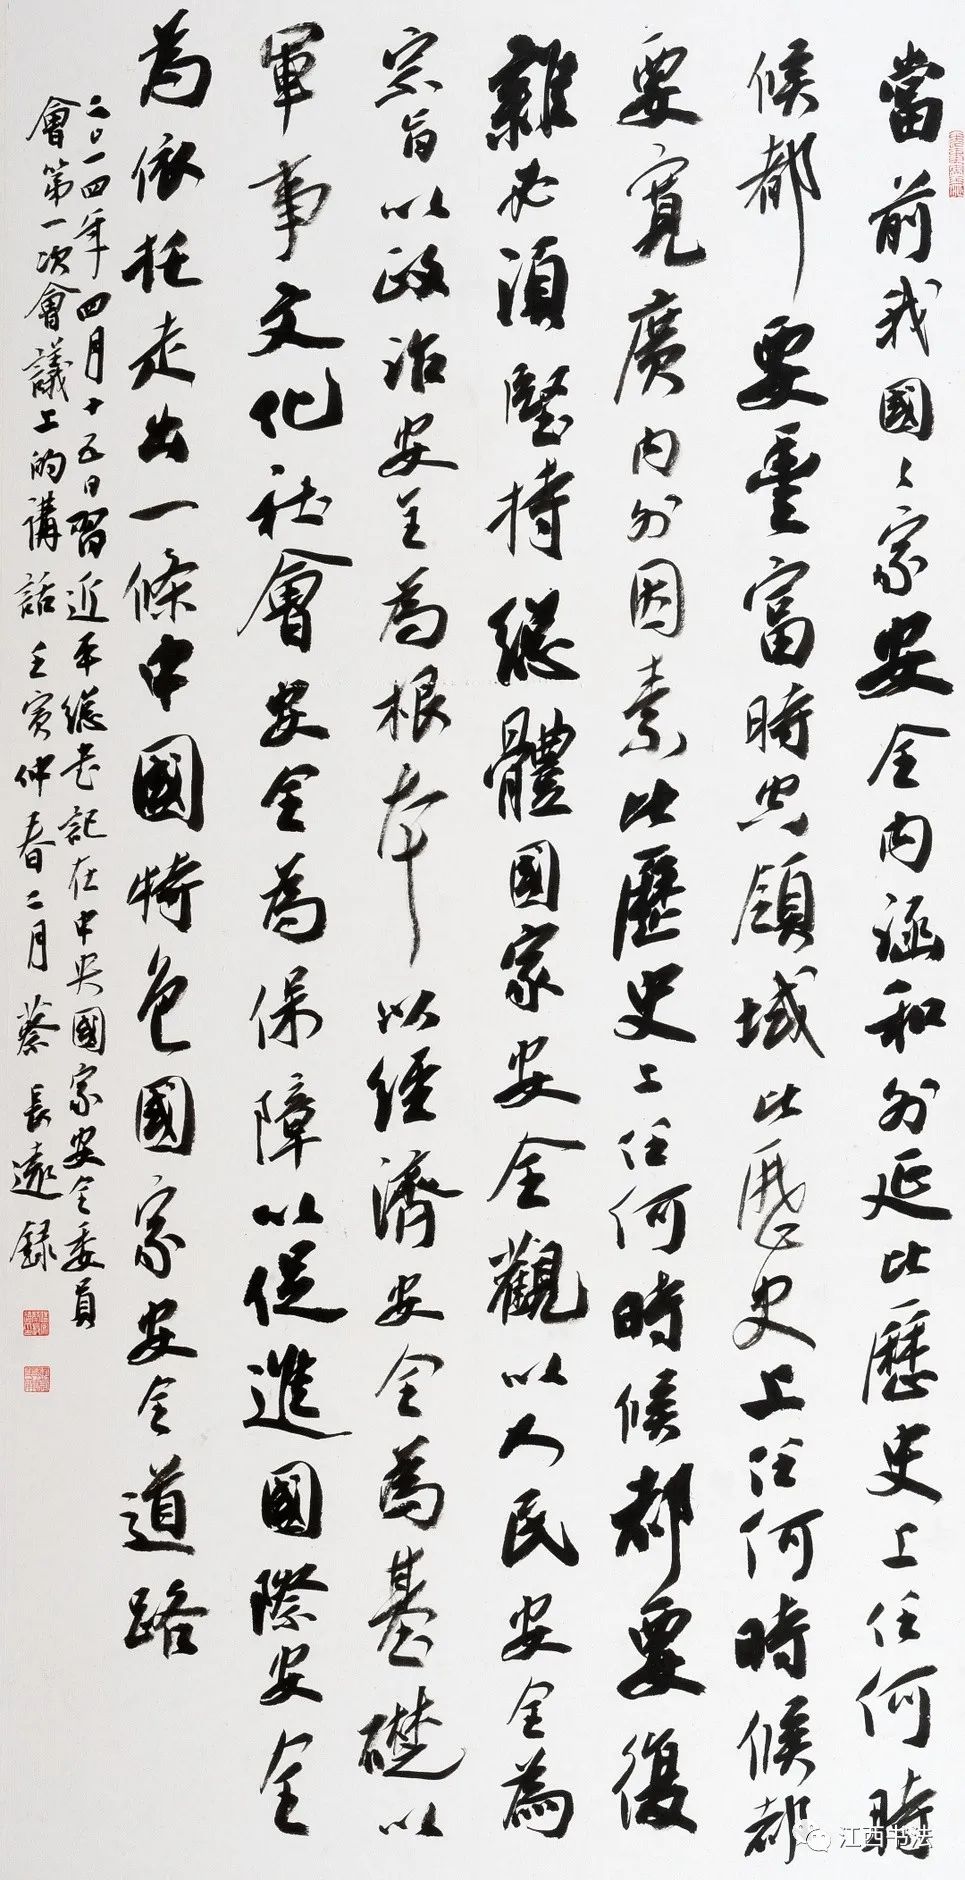 當前我國〻家安全内涵和外延比歷史上任何時
候都要豐富時空領域比歷史上任何時候都
要寬廣内外因素比歷史上任何時候都要復
雜必須堅持總體國家安全觀以人民安全為
宗旨以政治安全為根本以經濟安全為基礎以
軍事文化社會安全為保障以促進國際安全
為依托走出一條中國特色國家安全道路
二〇一四年四月十五日習近平總書記在中央國家安全委員
會第一次會議上的講話壬寅仲春二月蔡長遠録
江西书法